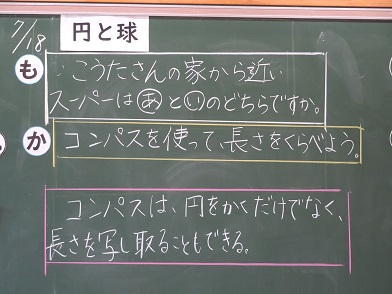 7/18
円と球
も
こうたさんの家から近い
スーパーはあといのどちらですか。
か
コンパスを使って、長さをくらべよう。
コンパスは、円をかくだけでなく、
長さを写し取ることもできる。